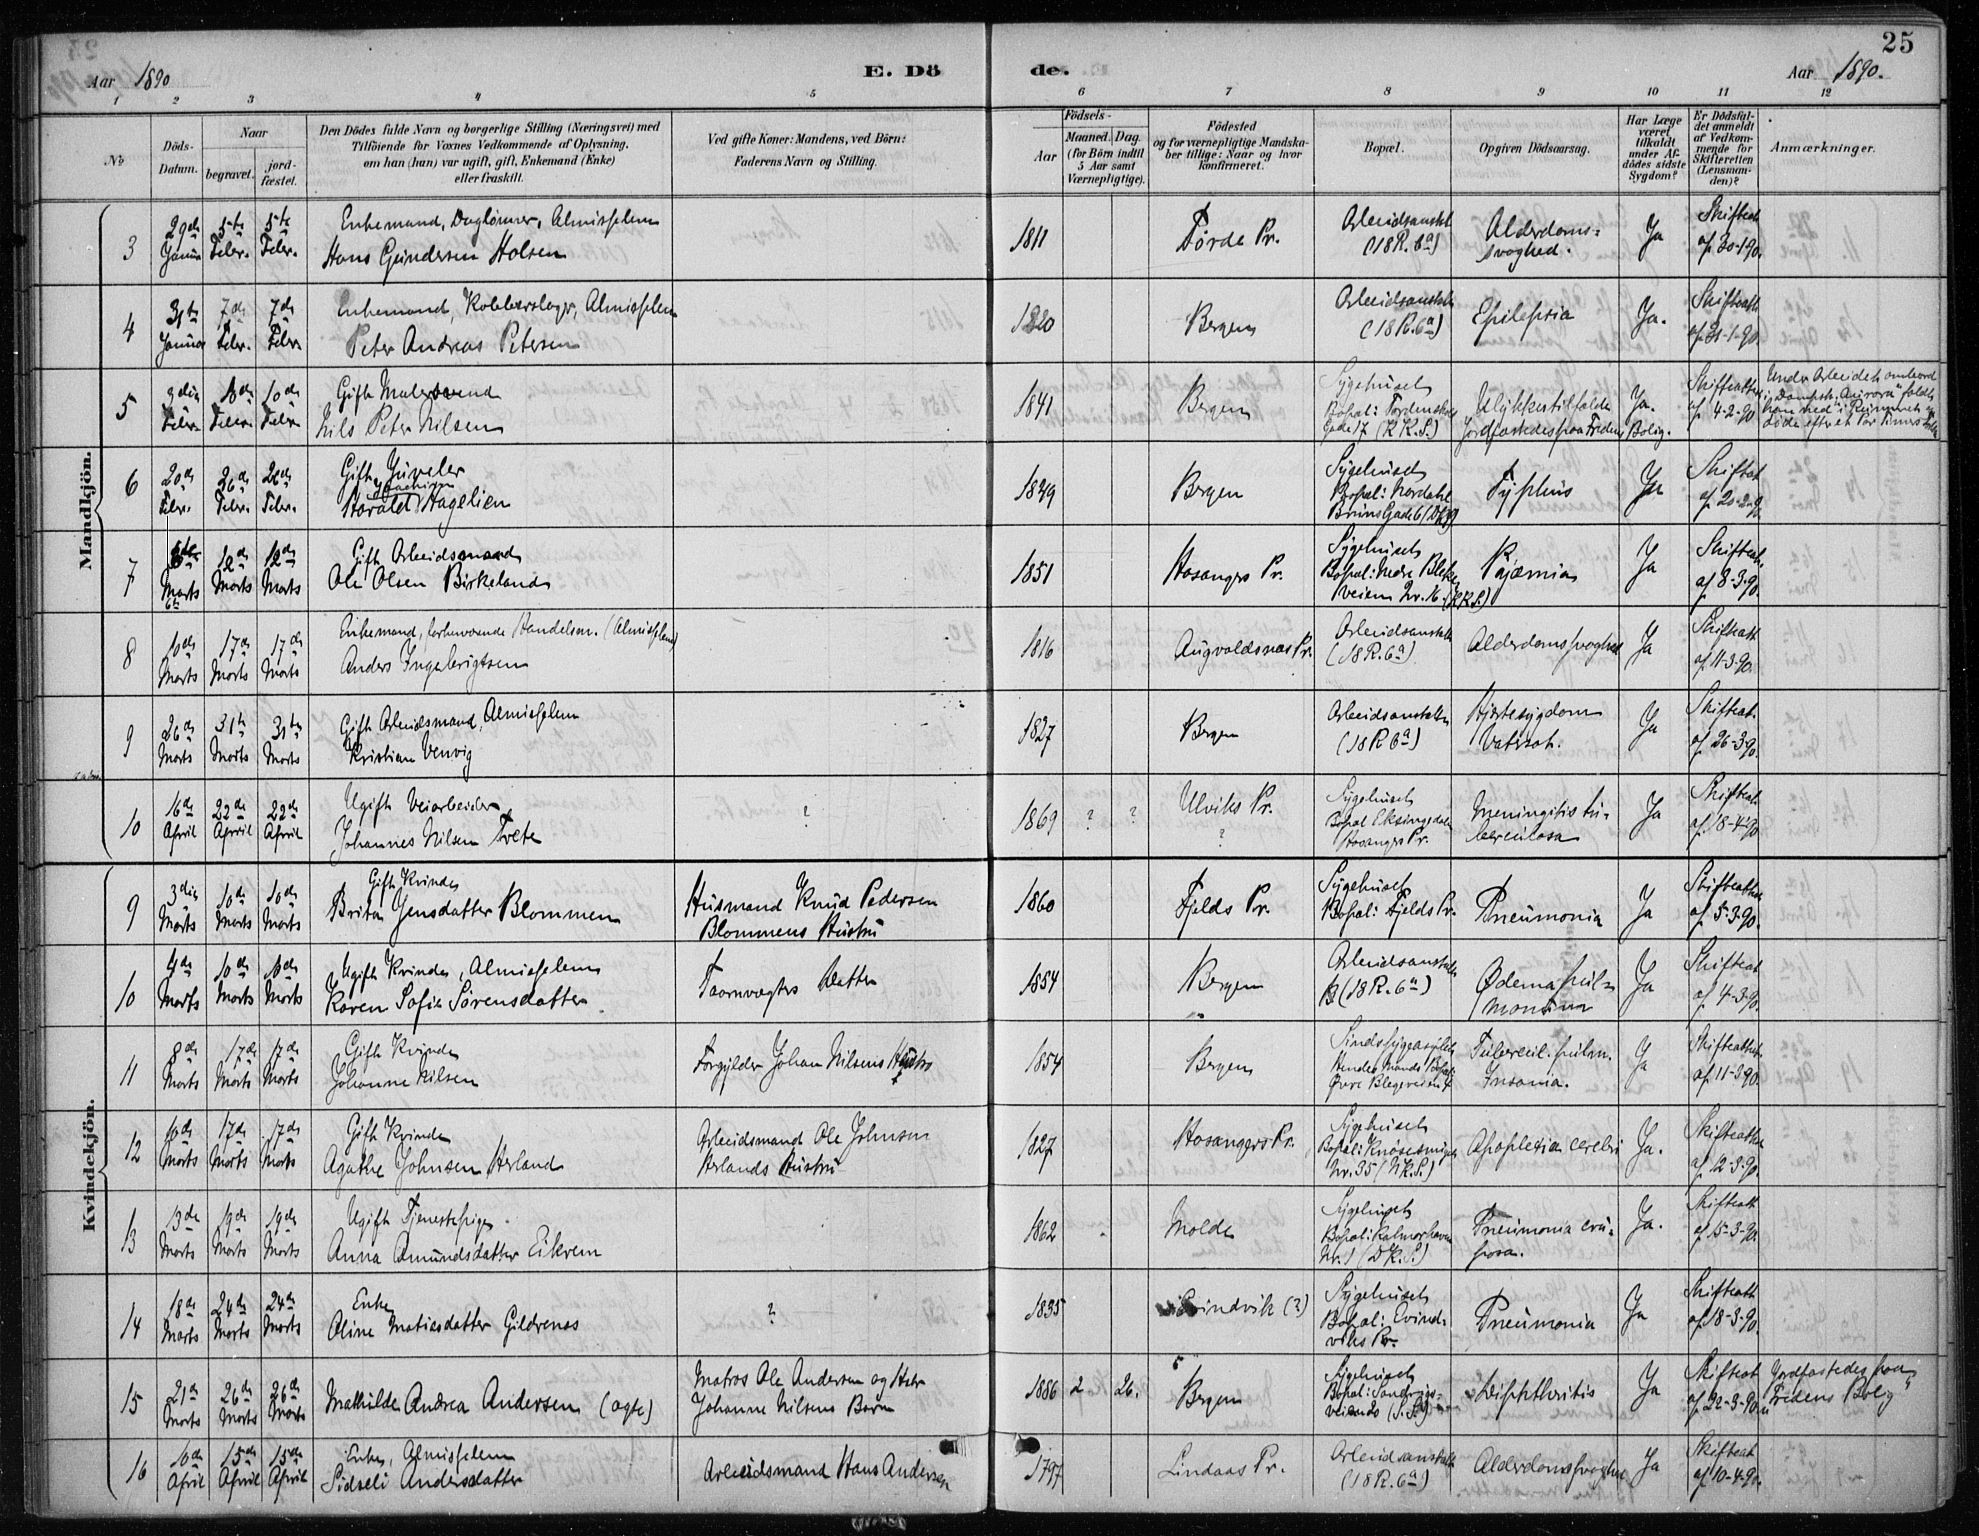 25
Aar 1890
E. Dö
de.
Aar 1890.
1 2 3 4 5 6 7 8 9 10 11 12
No
Döds-Datum.
Naar
begravet.
jord-fæstet.
Den Dödes fulde Navn og borgerlige Stilling (Næringsvei) med
Tilföiende for Voxnes Vedkommende af Oplysning,
om han (hun) var ugift, gift, Enkemand (Enke)
eller fraskilt.
Ved gifte Koner: Mandens, ved Börn:
Faderens Navn og Stilling.
Födsels-
Aar
Maaned.
Dag.
(for Börn indtil
5 Aar samt
Værnepligtige).
Födested
og for værnepligtige Mandska-
ber tillige: Naar og hvor
konfirmeret.
Bopæl.
Opgiven Dödsaarsag.
Har Læge
været
tilkaldt
under Af-
dödes sidste
Sygdom?
Er Dödsfal-
det anmeldt
af Vedkom-
mende for
Skifteretten
(Lensman-
den)?
Anmærkninger.
Mandkjön.
3
29de Januar
5te Febr.
5te Febr.
Enkemand, Daglönner, Almisselem
Hans Gundersen Holsen
1811
Förde Pr.
Arbeidsanstalt
(18 R. 6a)
Alderdoms-
svaghed.
Ja
Skifteat.
af 30-1-90.
4
31te Januar
7de Febr.
7de Febr.
Enkemand, Kobberslager, Almisselem
Peter Andreas Petersen
1820
Bergen
Arbeidsanstalten
(18 R. 6a)
Epilepsia
Ja.
Skifteatt.
af 31-1-90.
5
3die Febr.
10de Febr.
10de Febr.
Gift Malersvend
Nils Peter Nilsen
1841
Bergen
Sygehuset
Bopæl: Tordenskjolds
Gade 17 (K.K.S.)
Ulykkestilfælde
Jordfæstedes paa Fredens Bolig.
Ja.
Skifteattest
af 4-2-90
Under Arbeidet ombord
i Dampsk. "Aurora" faldt
han ned i Rummet og
døde efter et Par Timers
6
20de Febr.
26de Febr.
26de Febr.
Gift Juveler
Joachim
Harald Hagelien
1849
Bergen
Sygehuset
Bopæl: Nordahl
Bruns Gade 6 (D.K.S)
Typhus
Ja
Skifteat.
af 20-2-90.
7
Marts
6te
12de Marts
12de Marts
Gift Arbeidsmand
Ole Olsen Birkeland
1851
Hosangers Pr.
Sygehuset
Bopæl: Nedre Bleke
veien Nr. 16. (K.K.S.)
Pyæmia
Ja
Skifteat.
af 8-3-90.
8
10de Marts
17de Marts
17de Marts
Enkemand, forhenværende Handelsm. (Almisselem)
Anders Ingebrigtsen
1816
Augvaldsnæs Pr.
Arbeidsanstalten
(18 R. 6a)
Alderdomssvaghed
Ja
Skifteatt.
af 11-3-90.
9
26de Marts
31te Marts
31te Marts
Gift Arbeidsmand, Almisselem
Kristian Venvig
1827
Bergen
Arbeidsanstalten
(18 R 6a)
Hjertesygdom
Vatersot.
Ja
Skifteat.
af 26-3-90.
10
16de April
22de April
22de April
Ugift Veiarbeider
Johannes Nilsen Tvete
?
1869
?
?
Ulviks Pr.
?
Sygehuset
Bopæl Eksingedalen
Hosangers Pr.
Meningitis tu-
berculosa
Ja
Skifteat.
af 18-4-90
Kvindekjön.
9
3die Marts
10de Marts
10de Marts
Gift Kvinde
Brita Jensdatter Blommen
Husmand Knud Pedersen
Blommens Hustru
1860
Fjelds Pr.
Sygehuset
Bopæl: Fjelds Pr.
Pneumonia
Ja
Skifteattest
af 5-3-90.
10
4de Marts
10de Marts
10de Marts
Ugift Kvinde, Almisselem
Karen Sofie Sörensdatter
Taarnvægters Datter
1854
Bergen
Arbeidsanstalten
(18 R. 6a)
Ödema pul-
monum
Ja
Skifteat
af 4-3-90.
11
8de Marts
17de Marts
17de Marts
Gift Kvinde
Johanne Nilsen
Forgylder Johan Nilsens Hustru
1854
Bergen
Sindssygeasylet
Hendes Mands Bopæl:
Övre Blegeveien
Tubercul. pulm.
Insania.
Ja
Skifteattest.
af 11-3-90.
12
10de Marts
17de Marts
17de Marts
Gift Kvinde
Agathe Johnsen Herland
Arbeidsmand Ole Johnsen
Herlands Hustru
1827
Hosangers Pr.
Sygehuset
Bopæl: Knösesmuget
Nr. 35 (N.K.S.)
Apoplexia cerebri
Ja.
Skifteatte
af 12-3-90.
13
13de Marts
19de Marts
19de Marts
Ugift Tjenestepige.
Anna Amundsdatter Eikrem
1862
Molde
Sygehuset
Bopæl: Kalmarhaven
Nr. 1 (D.K.S.)
Pneumonia cru-
posa.
Ja.
Skifteatt
af 15-3-90.
14
18de Marts
24de Marts
24de Marts
Enke
Oline Matiasdatter Gildrenæs
?
1835
Evindvik (?)
Sygehuset
Bopæl: Evind-
viks Pr.
Pneumonia
Ja
Skifteatt
af 18-3-90.
15
21de Marts
26de Marts
26de Marts
Mathilde Andrea Andersen (ægte)
Matros Ole Andersen og Hstr
Johanne Nilsens Barn
1886
2
26.
Bergen
Sygehuset
Bopæl: Sandvigs-
veien
Diphtheritis
Ja
Skifteat
af 22-3-90.
Jordfæstedes paa
"Fredens Bolig"
16
10de April
15de April
15de April
Enke, Almisselem
Sidseli Andersdatter
Arbeidsmand Hans Andersen
1797
Lindaas Pr.
Arbeidsanstalten
(18 R. 6a)
Alderdomssvaghed
Ja
Skifteat
af 10-4-90.